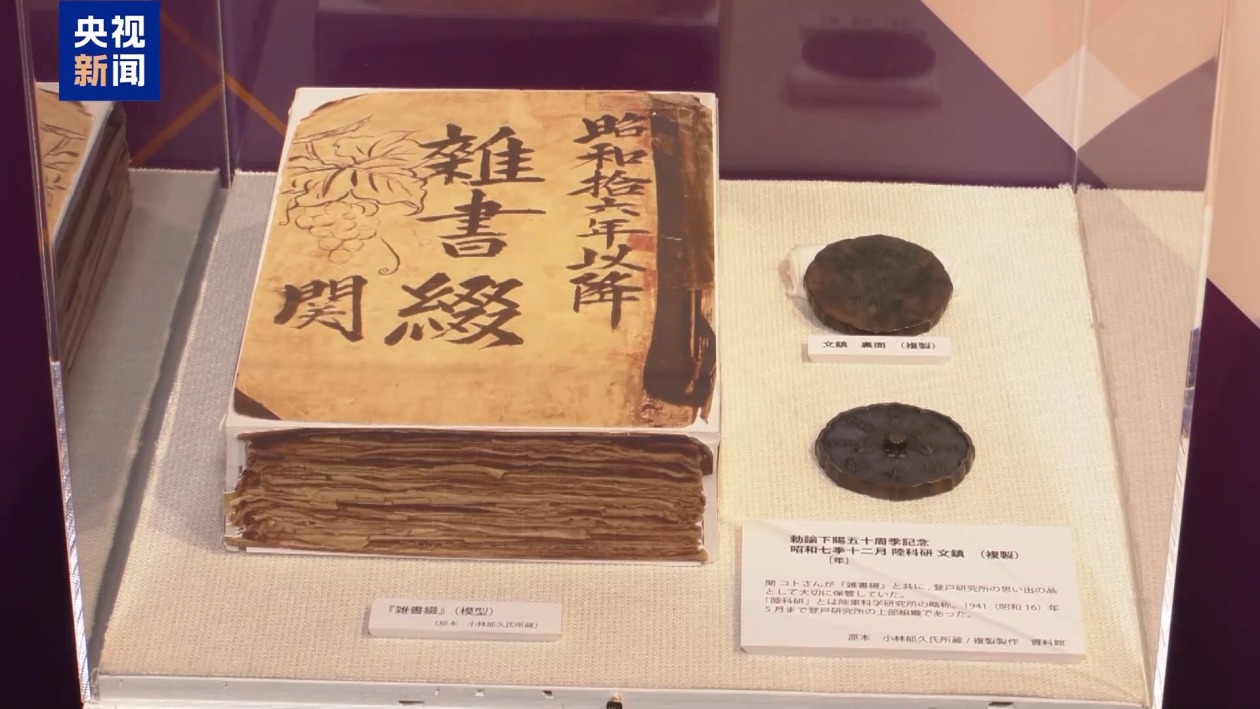 央视
新闻
昭和拾六年以降
雑書綴
関
文鎮　裏面　（複製）
『雑書綴』（模型）
（原本　小林郁久氏所蔵）
勅諭下賜五十周季記念
昭和七季十二月 陸科研 文鎮　（複製）
［年］
関 コトさんが『雑書綴』と共に、登戸研究所の思い出の品
として大切に保管していた。
「陸科研」とは陸軍科学研究所の略称。1941（昭和16）年
5月まで登戸研究所の上部組織であった。
原本　小林郁久氏所蔵 / 複製製作　資料館